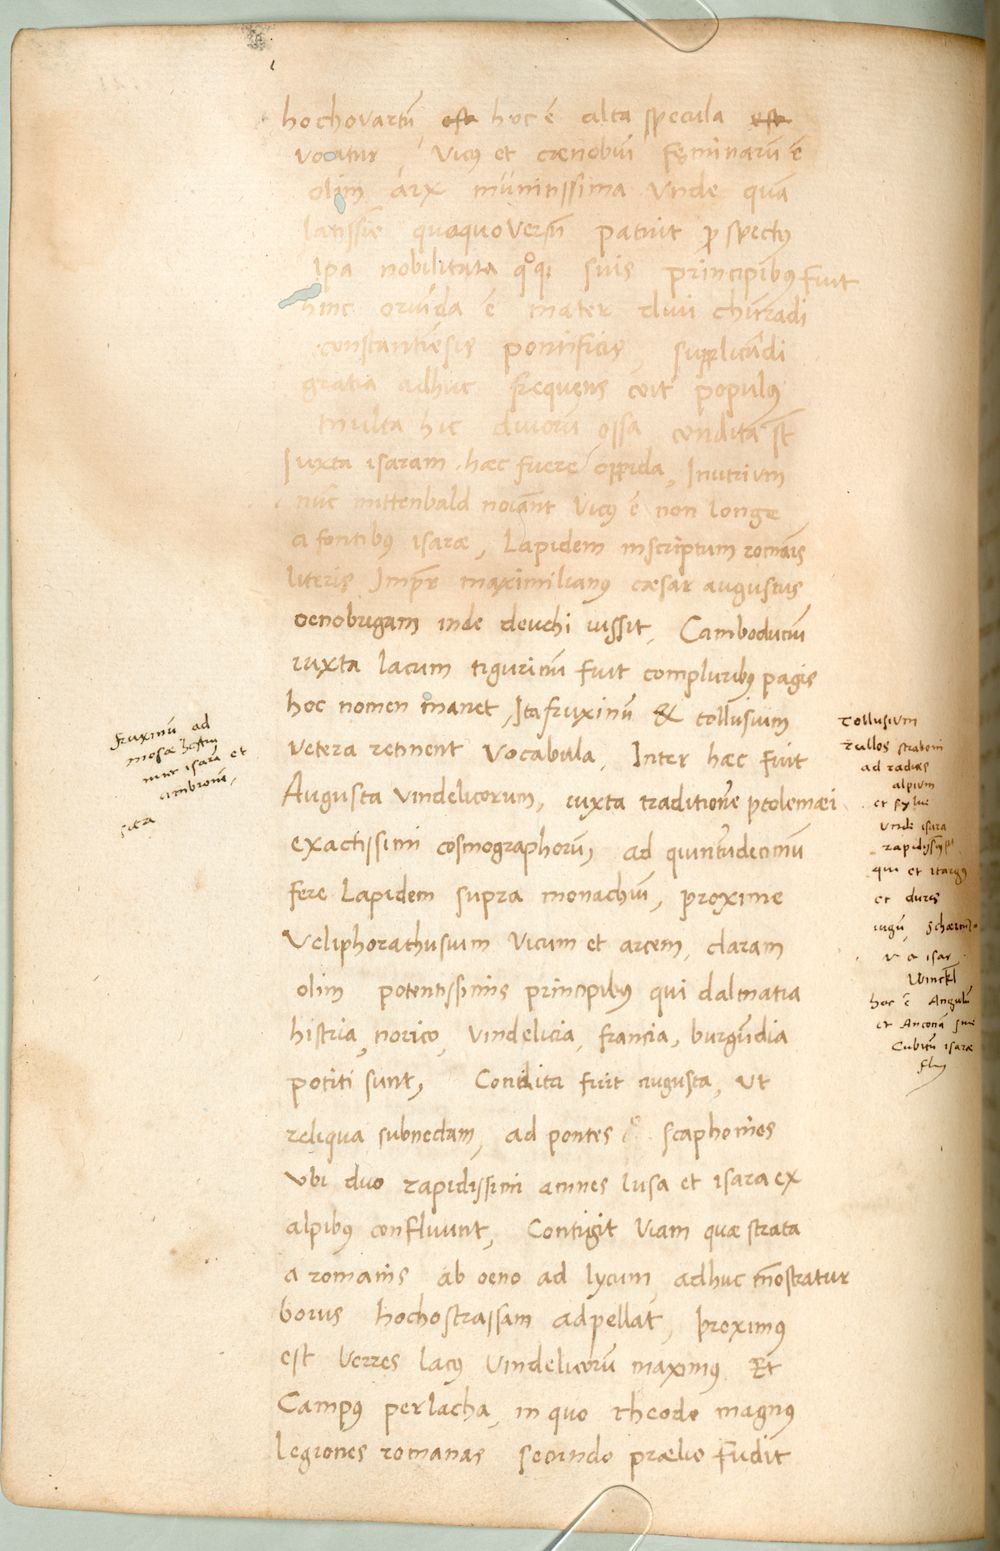 hochovartū hoc ē alta specula
vocatur, Vicꝯ et cœnobiū fęminarū ē
olim arx munitissima Vnde quā
latissīe quoquoVersū patuit ꝓspectꝯ
Ipa nobilitata qͦqꝫ suis principibꝯ fuit
hinc oriūda ē mater diui chūradi
constantiēsis pontificis, supplicādi
gratia adhuc frequens coit populꝯ
multa hic diuorū ossa condita st̄
Iuxta isaram hæc fuere oppida, Inutrium
nūc mittenbald noīant Vicꝯ ē non longe
a fontibꝯ isaræ, Lapidem inscriptum romāis
literis Imper maximilianꝯ cæsar augustus
oenobrigam inde deuehi iussit, Cambodunū
iuxta lacum tigurinū fuit compluribꝯ pagis
hoc nomen manet, Ita fruxinū & tollusium
Vetera retinent Vocabula, Inter hæc fuit
Augusta Vindelicorum, iuxta traditionē ptolemæi
exactissimi cosmographorū, ad quintūdecimū
fere Lapidem supra monachiū, proxime
Veliphorathusium Vicum et arcem, claram
olim potentissimis principibꝯ qui dalmatia
histria, norico, Vindelicia, francia, burgūdia
potiti sunt, Condita fuit augusta, Vt
reliqua subnectam, ad pontes scaphonios
Vbi duo rapidissimi amnes lusa et isara ex
alpibꝯ confluunt, Contigit Viam quæ strata
a romanis ab oeno ad lycum, adhuc mōstratur
borus hochostrassam adpellāt, Proximꝯ
est Verres lacꝯ Vindelicorū maximꝯ Et
Campꝯ perlacha, in quo theodo magnꝯ
legiones romanas secundo prælio fudit
fruxinū ad
mosæ
inter isarā et
ambronē,
tollusium
tullos straboni
ad radices
alpium
et sylue
Vnde isara
qui et itargꝯ
et duris
iugū,
Winckl
hoc ē Angulꝯ
et Anconā siue
Cubitū isaræ